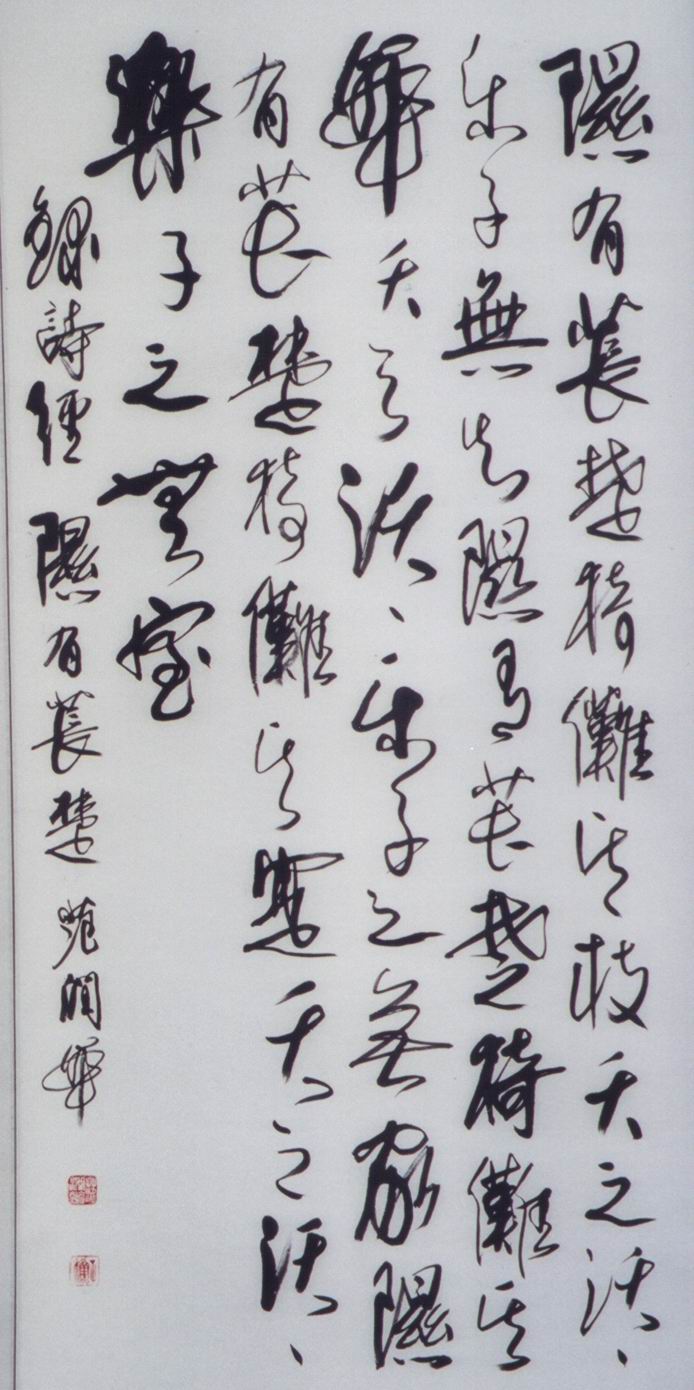 隰有萇楚猗儺其枝夭之沃〻
樂子無知隰有萇楚猗儺其
華夭之沃〻樂子之無家隰
有萇楚猗儺其實夭之沃〻
樂子之無室
錄詩經 隰有萇楚 范润華